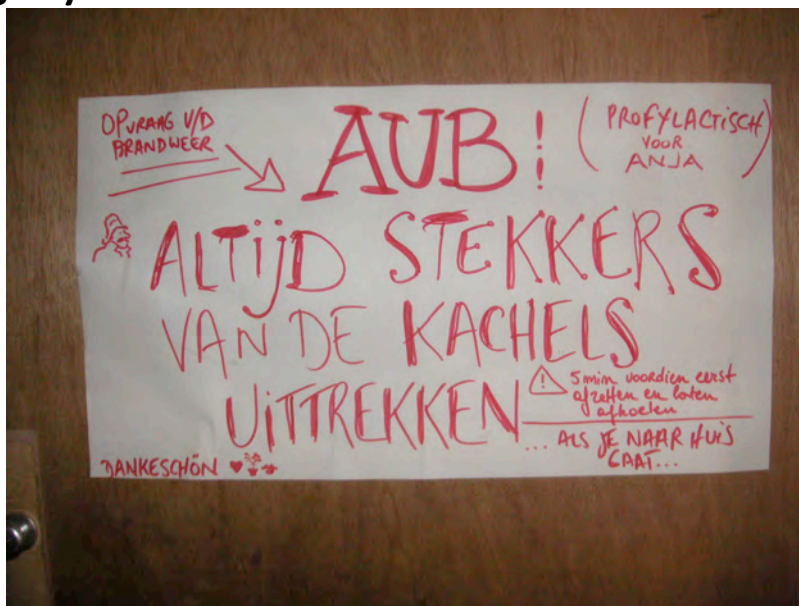 OPVRAAG V/D
BRANDWEER
AUB!
(PROFYLACTISCH
VOOR
ANJA)
ALTIJD STEKKERS
VAN DE KACHELS
UITTREKKEN
5 min voordien eerst
afzetten en laten
afkoelen
... ALS JE NAAR HUIS
GAAT...
DANKESCHÖN